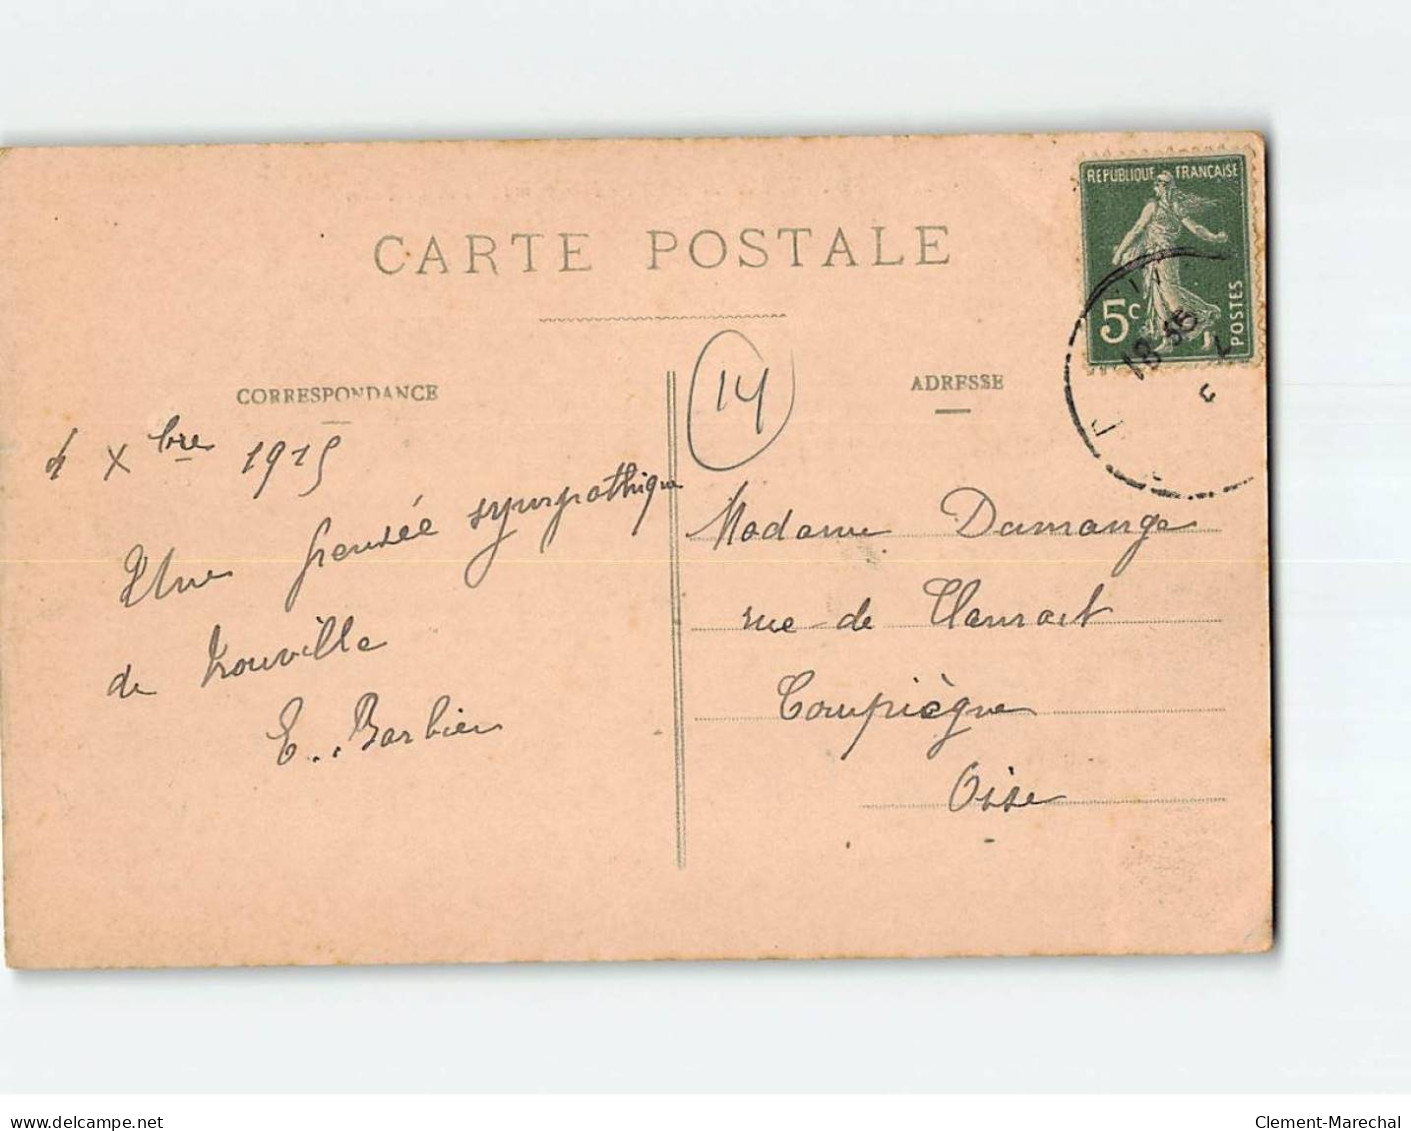 CARTE POSTALE
RÉPUBLIQUE FRANÇAISE
5c
POSTES
18 35
14
CORRESPONDANCE
ADRESSE
4 Xbre 1915
Une pensée sympathique
de Trouville
E. Barbier
Madame Damange
rue de Clamart
Compiègne
Oise
www.delcampe.net
Clement-Marechal